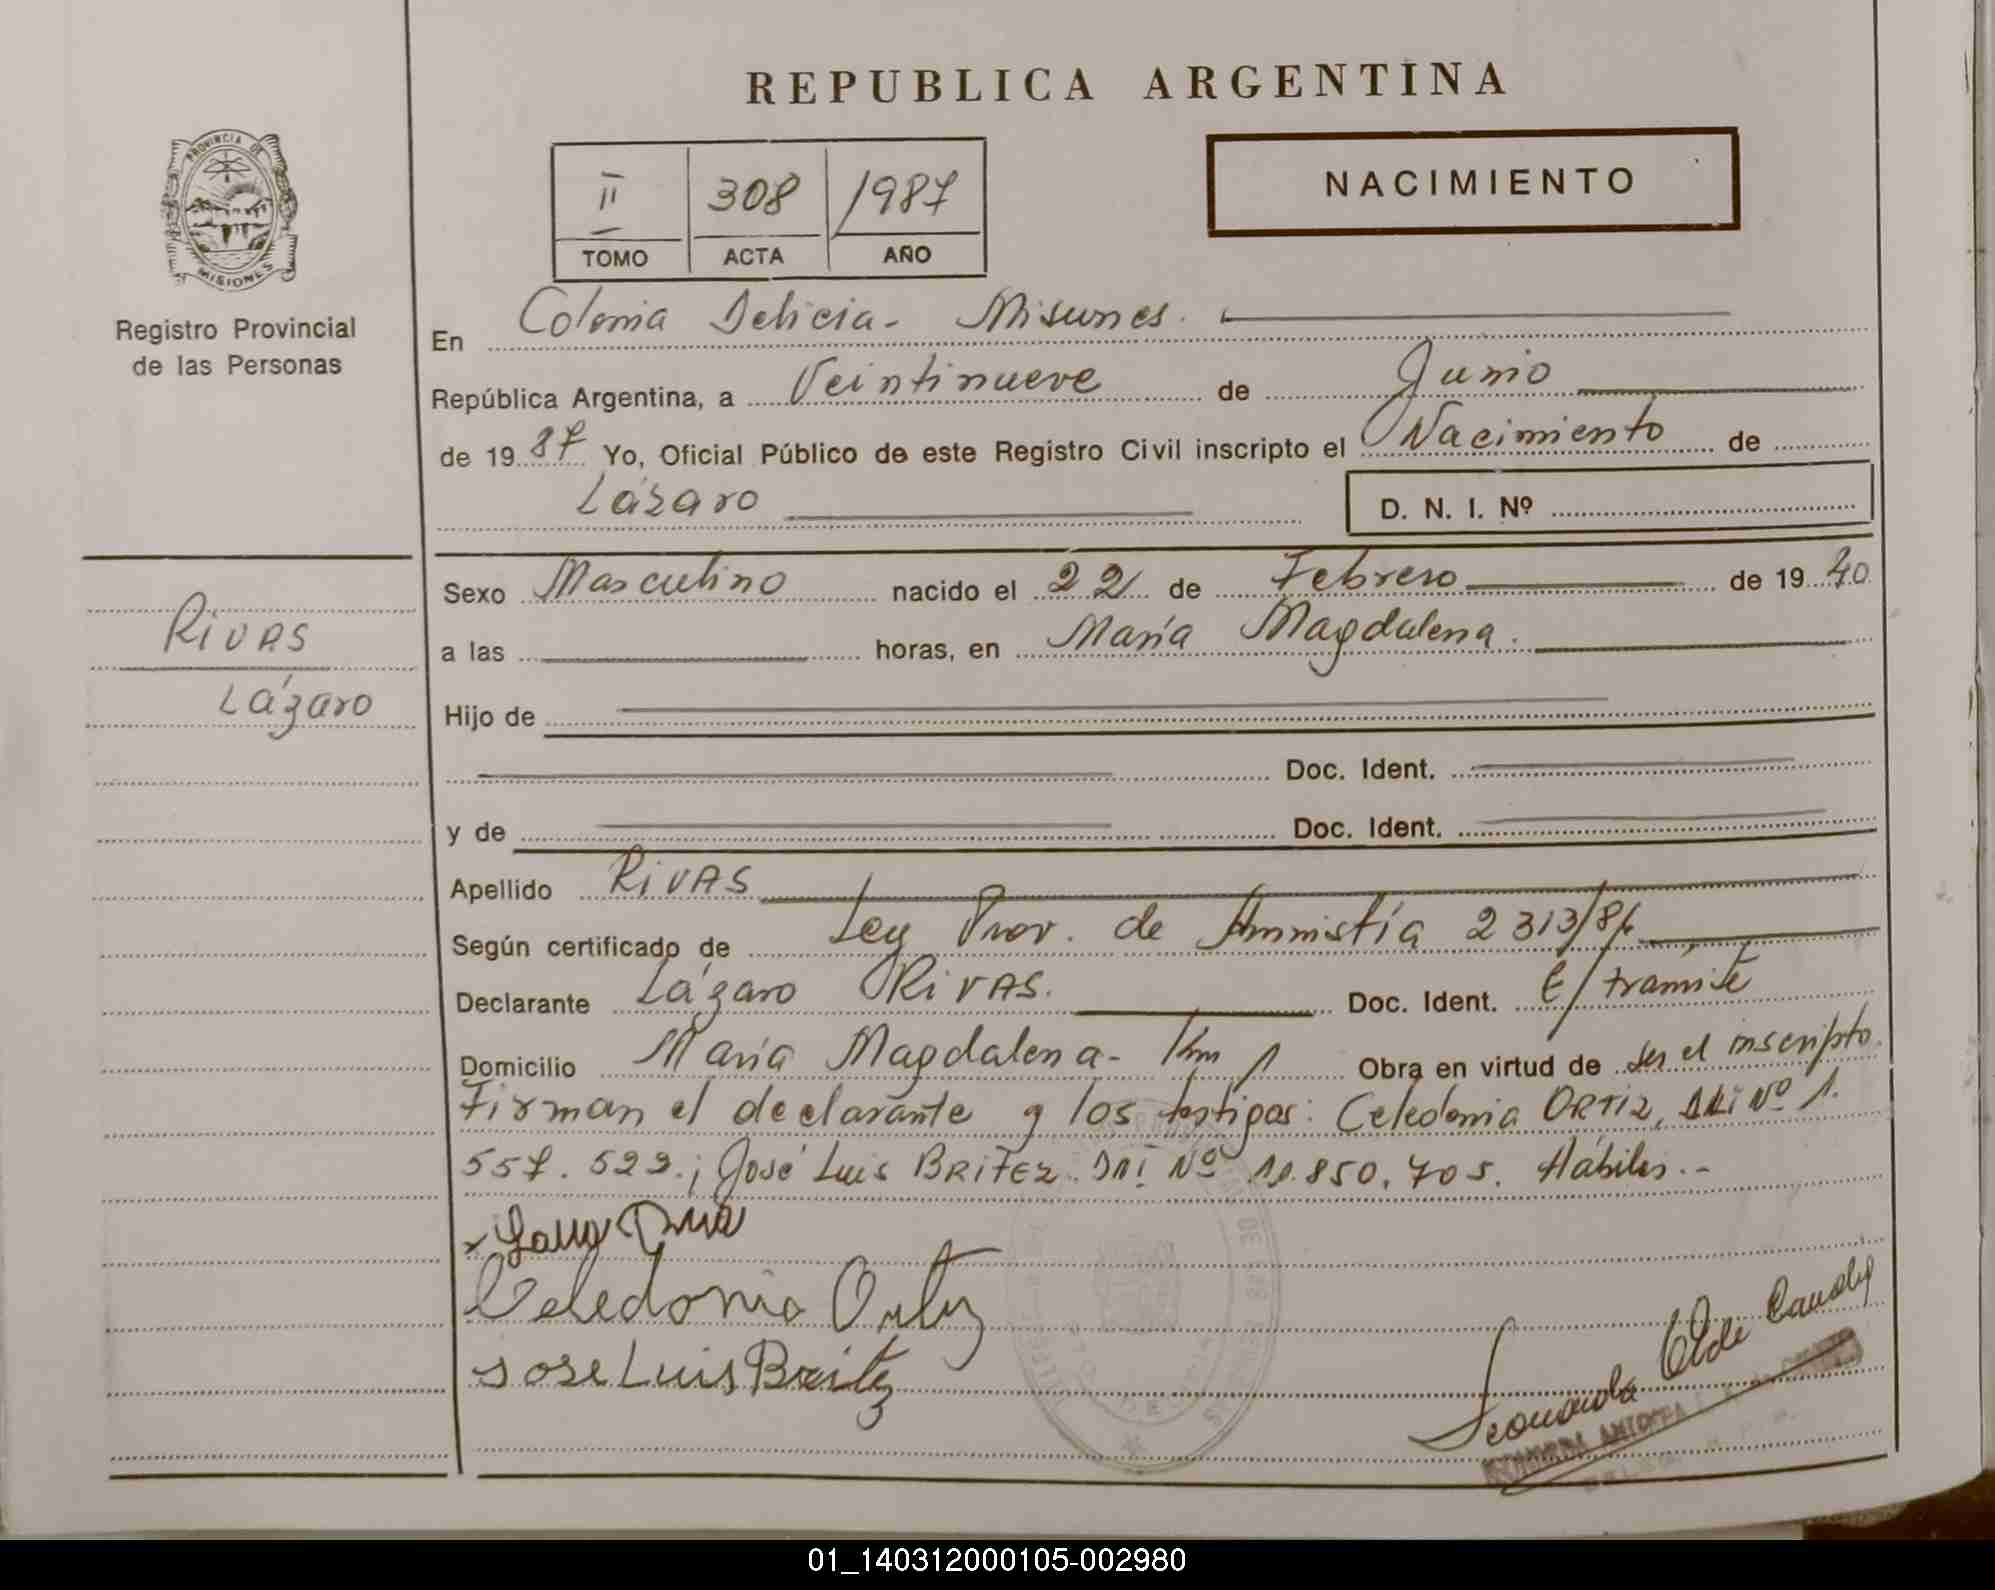 REPUBLICA ARGENTINA
PROVINCIA DE
MISIONES
Registro Provincial
de las Personas
II 308 1987
TOMO ACTA AÑO
NACIMIENTO
En Colonia Delicia - Misiones.
República Argentina, a Veintinueve de Junio
de 19 87 Yo, Oficial Público de este Registro Civil inscripto el Nacimiento de
Lázaro D. N. I. Nº
Sexo Masculino nacido el 22 de Febrero de 19 40
RIVAS
a las horas, en María Magdalena.
Lázaro
Hijo de
Doc. Ident.
y de Doc. Ident.
Apellido RIVAS
Según certificado de Ley Prov. de Amnistía 2313/86
Declarante Lázaro RIVAS. Doc. Ident. E/trámite
Domicilio María Magdalena - Km 1 Obra en virtud de ser el inscripto.
Firman el declarante y los testigos: Celedonia ORTIZ, DNI Nº 1.
557. 522.; José Luis BRITEZ. DNI Nº 11.850.705. Hábiles.-
Celedonia Ortiz
Jose Luis Britez
01_140312000105-002980